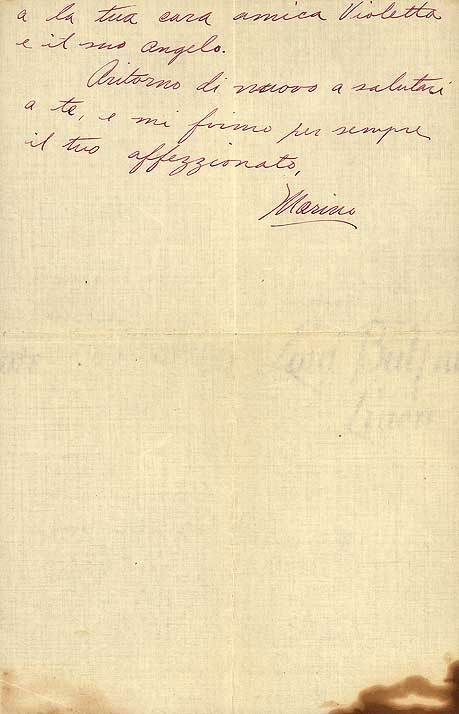 a la tua cara amica Violetta
e il suo angelo.
Aritorno di nuovo a salutari
a te, e mi firmo per sempre
il tuo affezzionato,
Marino
Lord
Linen